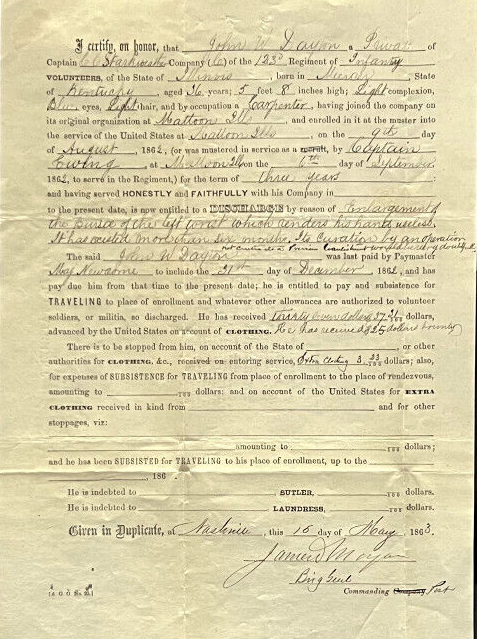 I certify, on honor, that John W Dayton a Privat of
Captain C C Starkweather Company (C) of the 123d Regiment of Infantry
VOLUNTEERS, of the State of Illinois, born in State
of Kentucky, aged 36 years; 5 feet 8 inches high; Light complexion,
Blue eyes, Light hair, and by occupation a Carpenter, having joined the company on
its original organization at Mattoon Ills, and enrolled in it at the muster into
the service of the United States at Mattoon Ills on the 9th day
of August, 1862, (or was mustered in service as a recruit, by Captain
Ewing at Mattoon Ills on the 6th day of September
1862, to serve in the Regiment,) for the term of three years
and having served HONESTLY and FAITHFULLY with his Company in
to the present date, is now entitled to a DISCHARGE by reason of Enlargement of
the Bursa of the left wrist which renders his hand useless.
It has existed more than six months. Its curation by an operation
The said John W Dayton was last paid by Paymaster
Maj Newsome to include the 31st day of December, 1862, and has
pay due him from that time to the present date; he is entitled to pay and subsistence for
TRAVELING to place of enrollment and whatever other allowances are authorized to volunteer
soldiers, or militia, so discharged. He has received Thirty Seven dollars 37
advanced by the United States on account of CLOTHING. He has received $25 dollars bounty
There is to be stopped from him, on account of the State of , or other
authorities for CLOTHING, &c., received on entering service, Extra Clothing 3 33/100 dollars; also,
for expenses of SUBSISTENCE for TRAVELING from place of enrollment to the place of rendezvous,
amounting to /100 dollars; and on account of the United States for EXTRA
CLOTHING received in kind from and for other
stoppages, viz:
amounting to /100 dollars;
and he has been SUBSISTED for TRAVELING to his place of enrollment, up to the
, 186
He is indebted to SUTLER, /100 dollars.
He is indebted to LAUNDRESS, /100 dollars.
Given in Duplicate, at Nashville, this 15 day of May, 1863.
James D Morgan
Brig Genl
Commanding Company Post
(A. G. O. No. )